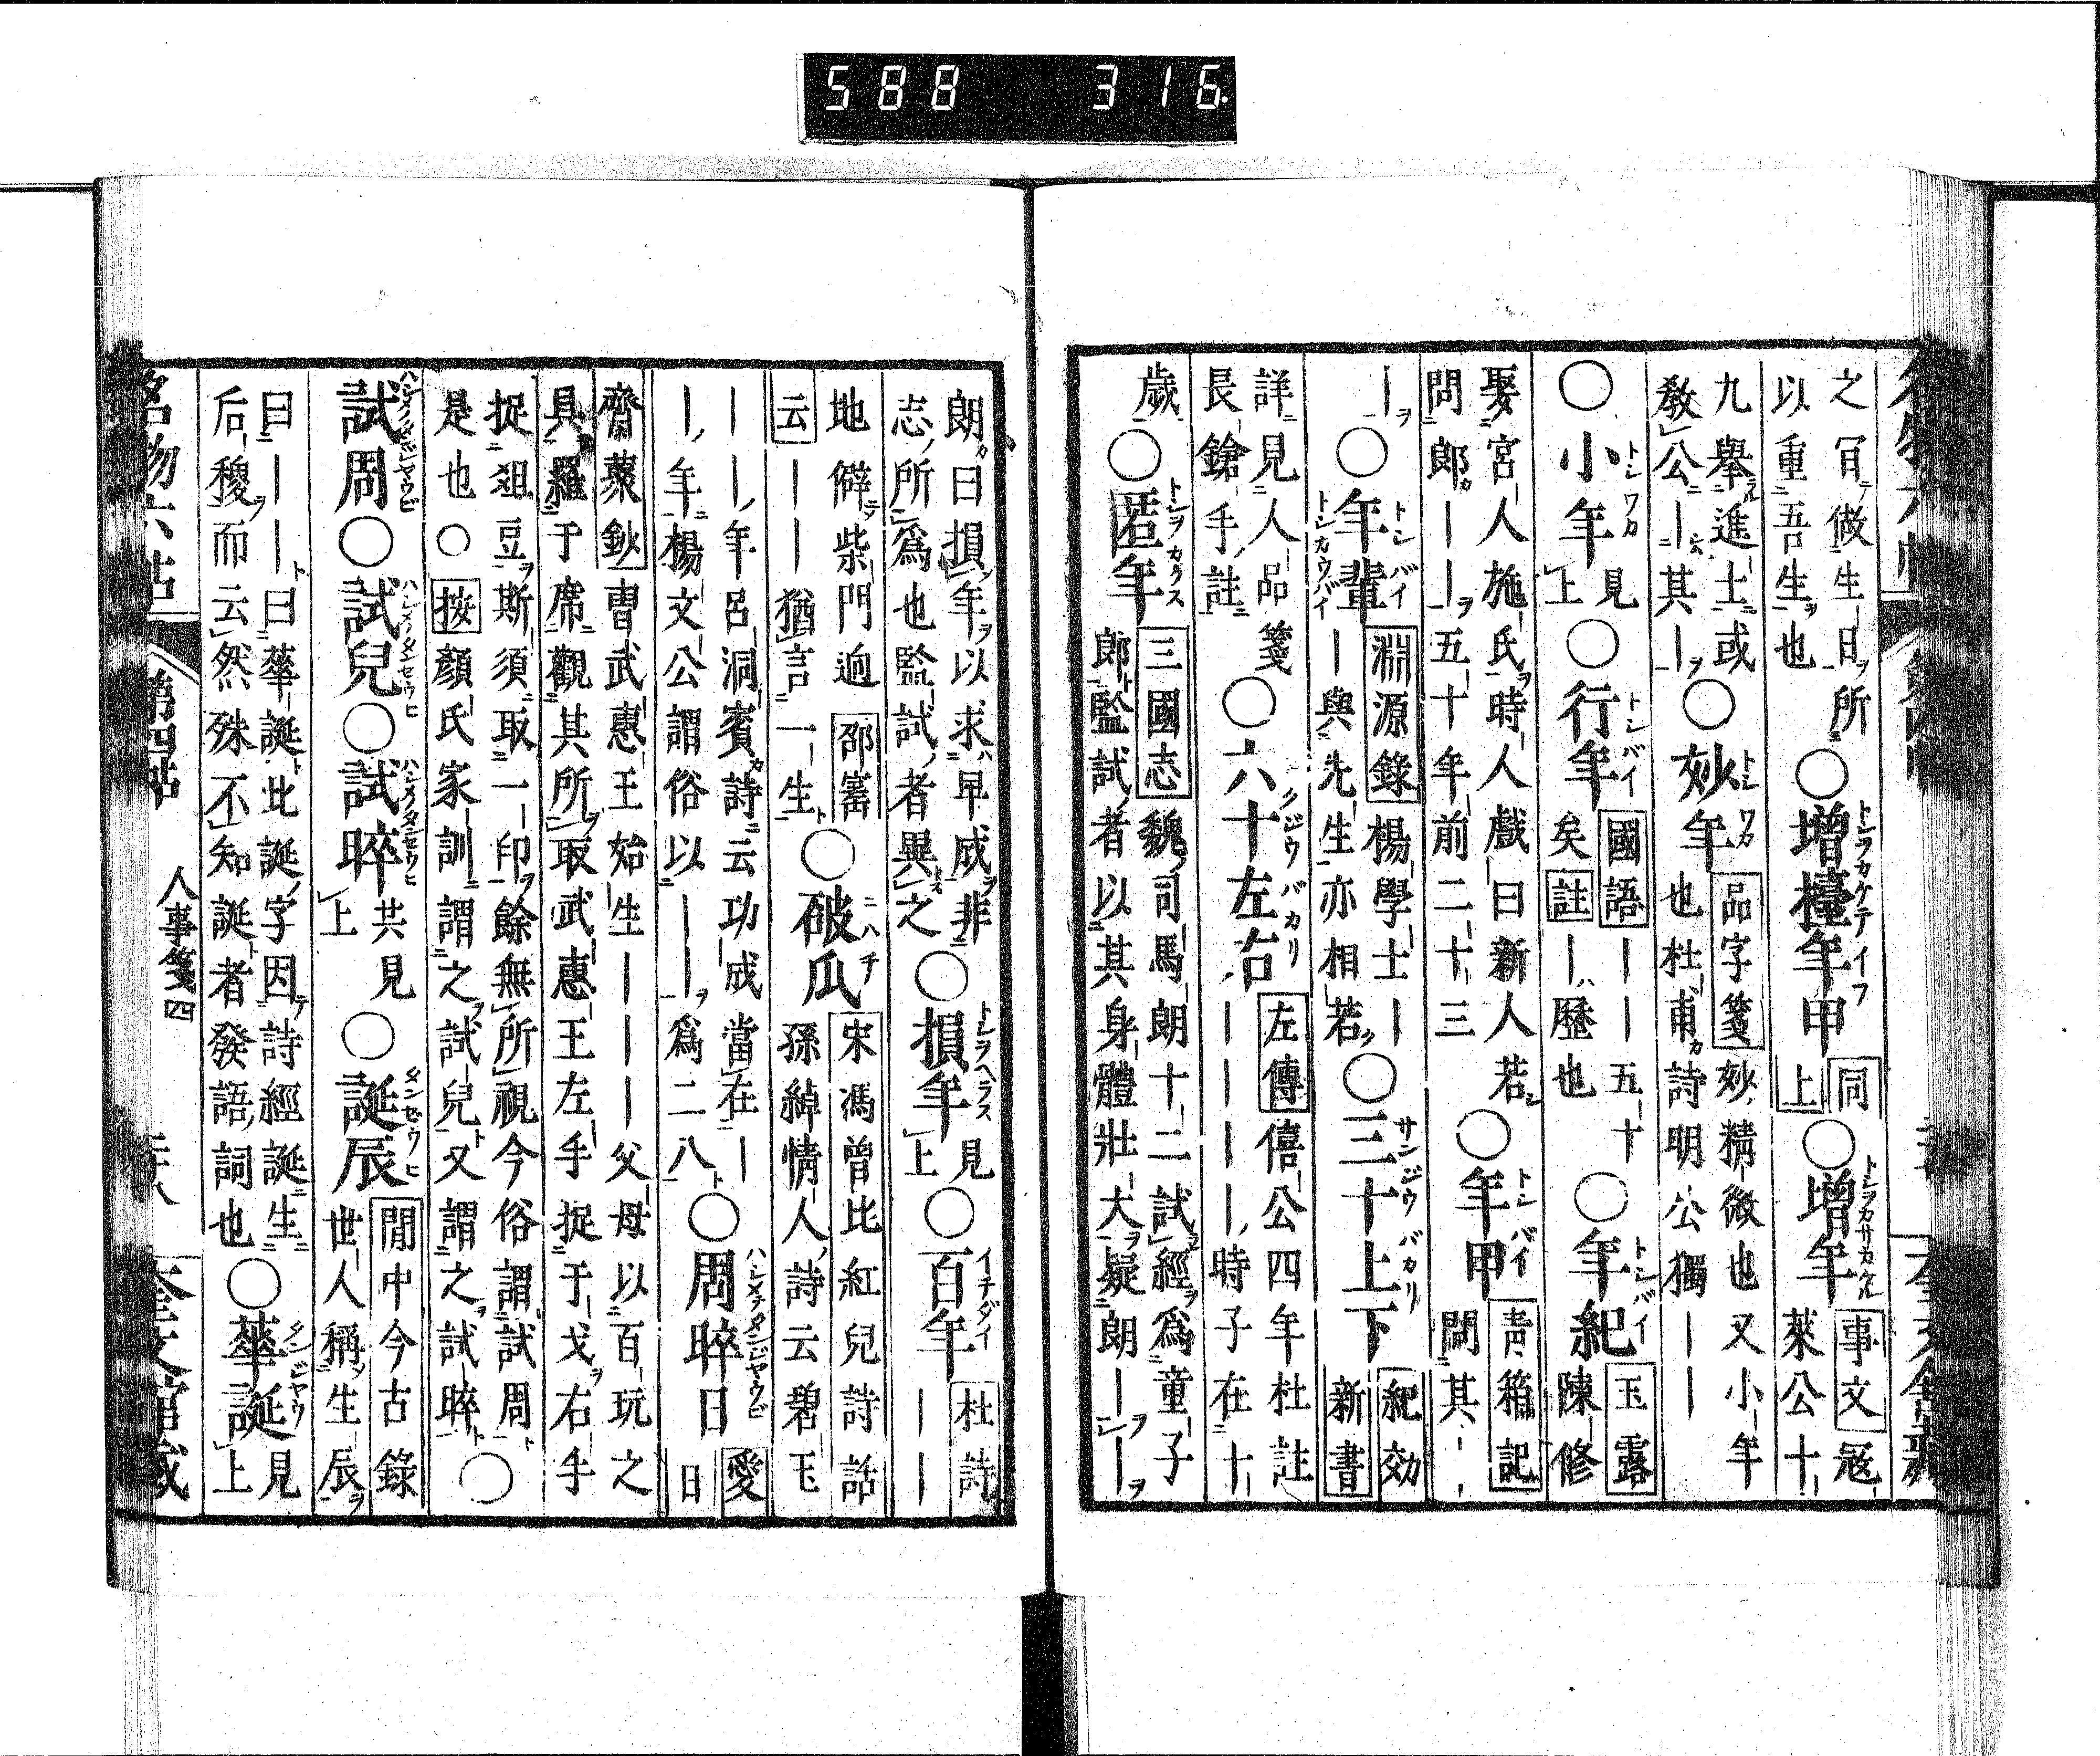 之
做生日所
以重吾生也
○增檯年甲
同
上
○增年
事文 冦
萊公十
九舉進士或
教公―其―
○妙年
品字箋 妙精微也又小年
也杜甫詩明公獨――
○小年
見
上
○行年
國語 ――五十
矣 註 ―歷也
○年紀
玉露
陳修
娶宮人施氏時人戲曰新人若
問郎――五十年前二十三
○年甲
青箱記
問其――
―
○年輩
淵源錄 楊學士―
―與先生亦相若
○三十上下
紀効
新書
詳見人品箋
長鎗手註
○六十左右
左傳 僖公四年杜註
――――時子在十
歲
○匿年
三國志 魏司馬朗十二試經爲童子
郎監試者以其身體壯大疑朗――
朗曰損年以求早成非
志所爲也監試者異之
○損年
見
上
○百年
杜詩
――
地僻柴門迥 邵寳
云 ――猶言一生
○破瓜
宋馮曾比紅兒詩話
孫綽情人詩云碧玉
――年呂洞賓詩云功成當在―
―年楊文公謂俗以――爲二八
○周晬日
愛
日
齋藂鈔 曹武惠王始生―――父母以百玩之
具羅于席觀其所取武惠王左手捉于戈右手
捉俎豆斯須取一印餘無所視今俗謂試周○
是也○按 顏氏家訓謂之試兒又謂之試晬
試周○試兒○試晬
共見
上
○誕辰
閒中今古錄
世人稱生辰
曰――曰華誕此誕字因詩經誕生
后稷而云然殊不知誕者發語詞也
○華誕
見
上
名物六帖
第四帖
人事箋四
奎文館藏
588 316